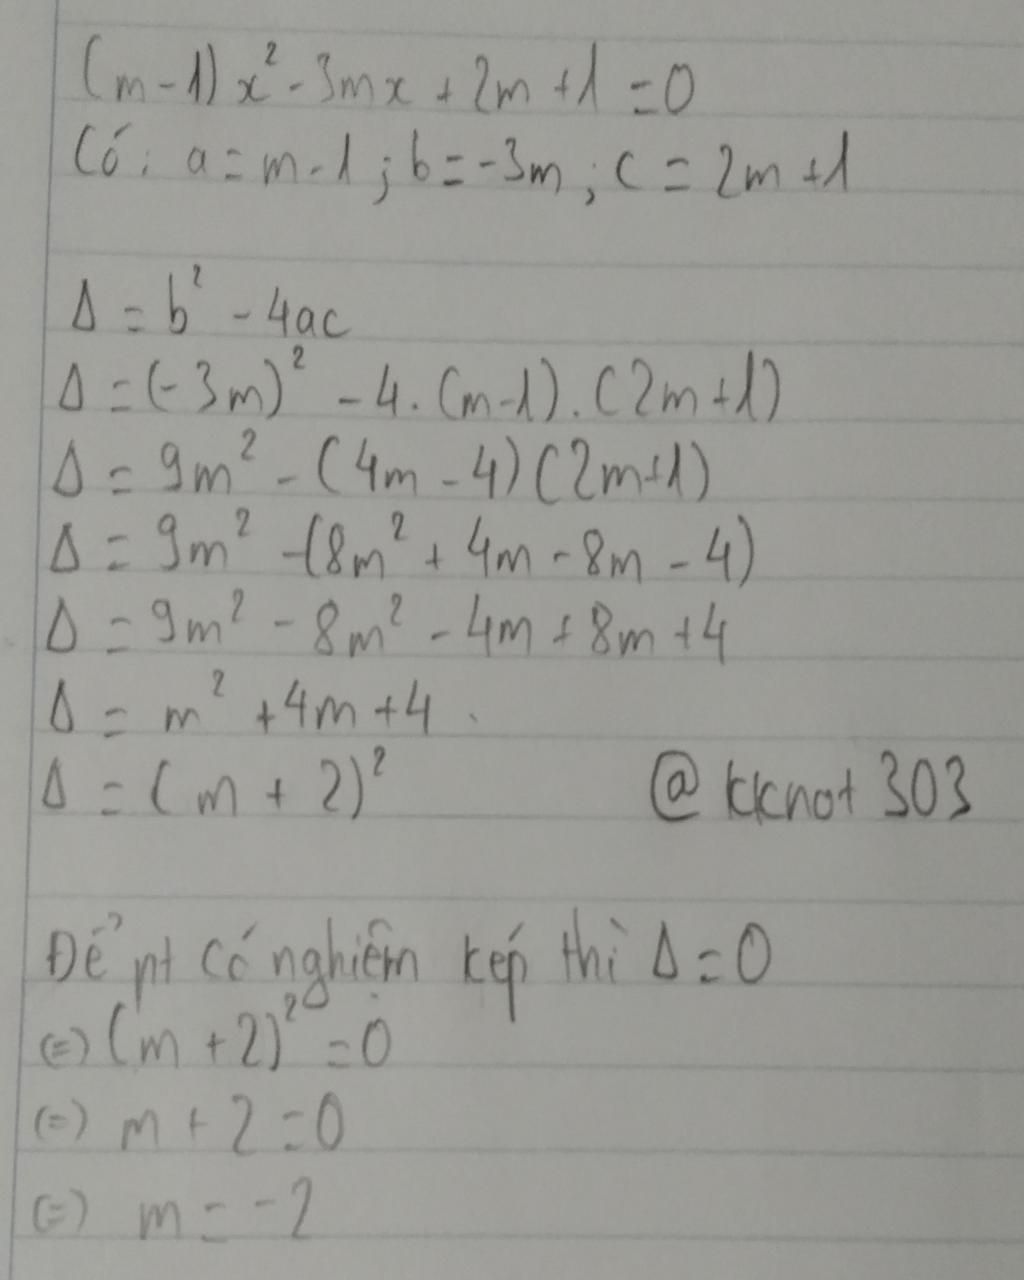 (m-1)x² - 3mx + 2m + 1 = 0
Có: a = m-1; b = -3m; c = 2m+1
Δ = b² - 4ac
Δ = (-3m)² - 4.(m-1).(2m+1)
Δ = 9m² - (4m - 4)(2m+1)
Δ = 9m² - (8m² + 4m - 8m - 4)
Δ = 9m² - 8m² - 4m + 8m + 4
Δ = m² + 4m + 4.
Δ = (m + 2)²
@kknot303
Để pt có nghiệm kép thì Δ = 0
(=) (m + 2)² = 0
(=) m + 2 = 0
(=) m = -2